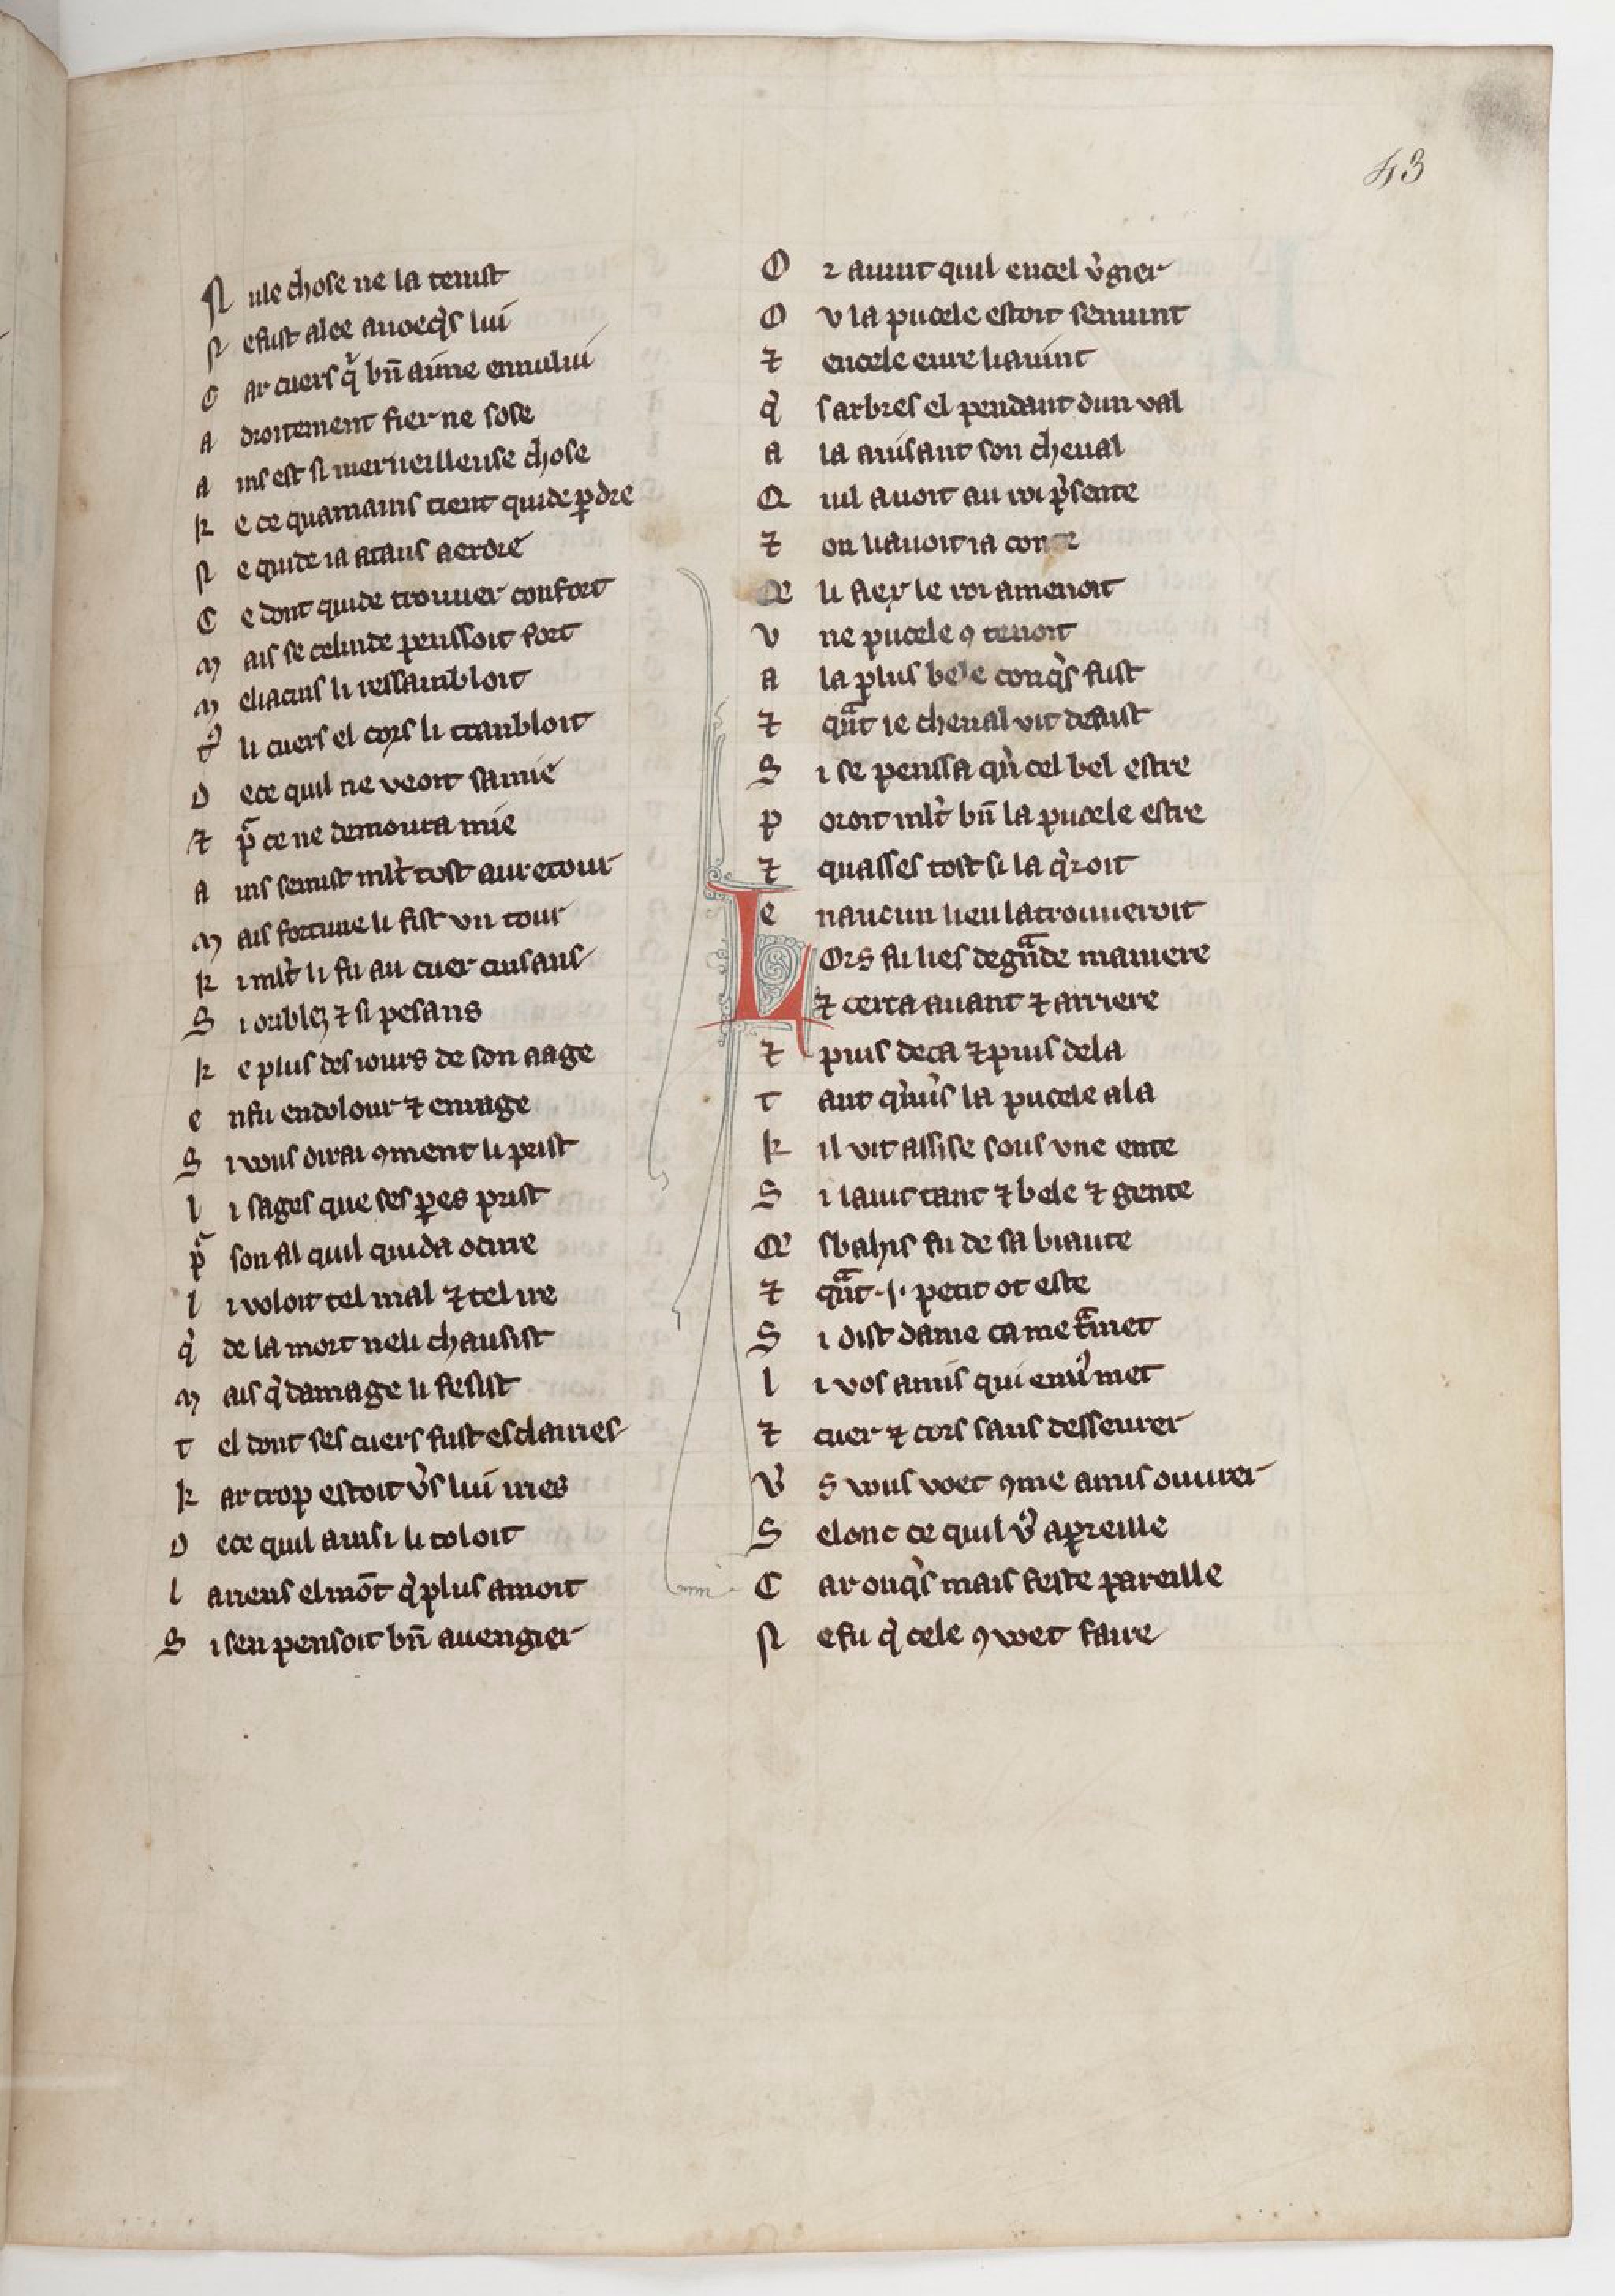 43
Nule chose ne la tenist
Nefust alee auoecq̓s lui
Car cuers q̓ bn̄ aime ennului
adroitement fier ne sose
ains est si merueilleuse chose
ke ce quamains tient quide ꝑdre
Ne quide ia atans aerdre
Ce dont quide trouuer confort
Mais se celinde penssoit fort
Meliacins li ressambloit
q̓ li cuers el cors li tranbloit
Dece quil ne veoit samie
⁊ pͬ ce ne demoura mie
ains senuist ml̓t tost auretour
Mais fortune li fist vn tour
ki ml̓t li fu au cuer cuisans
Si oublez ⁊ si pesans
ke plus des iours de son aage
enfu endolour ⁊ enrage
Si vous dirai ꝯment li prist
li sages que ses ꝑes prist
pͬ son fil quil quida ocirre
li voloit tel mal ⁊ tel ire
q̓ de la mort neli chausist
Mais q̓ damage li fesist
tel dont ses cuers fust esclairies
kar trop estoit v̓s lui iries
Dece quil ainsi li toloit
lariens el mōt q̓ plus amoit
Si sen pensoit bn̄ auengier
Or auint quil encel v̓gier
Ov la pucele estoit senuint
⁊ encele eure li auint
q̓ s arbres el pendant dun val
ala auisant son cheual
Quil auoit au roi p̓sente
⁊ on li auoit ia conte
Qe li aex le roi amenoit
Vne pucele ꝯ tenoit
ala plus bele conq̓s fust
⁊ qͣnt le cheual vit defust
Si se penssa qu̓ cel bel estre
poroit ml̓t bn̄ la pucele estre
⁊ quasses tost si la q̓roit
e naucun lieu la trouueroit
LOrs fu lies de gͣnde maniere
⁊ cerca auant ⁊ arriere
⁊ puis deca ⁊ puis dela
tant qu̓v̓s la pucele ala
kil vit assise sous vne ente
Si lauit tant ⁊ bele ⁊ gente
Qesbahis fu de sa biaute
⁊ qͣnt .i. petit ot este
Si dist dame ca me tͣmet
li vos amis qui env̓ met
⁊ cuer ⁊ cors sans desseurer
V̓s vous voet ꝯme amis ouurer
Selonc ce quil v̓ apreille
Car onq̓s mais feste pareille
Nefu q̓ cele ꝯ voet faire